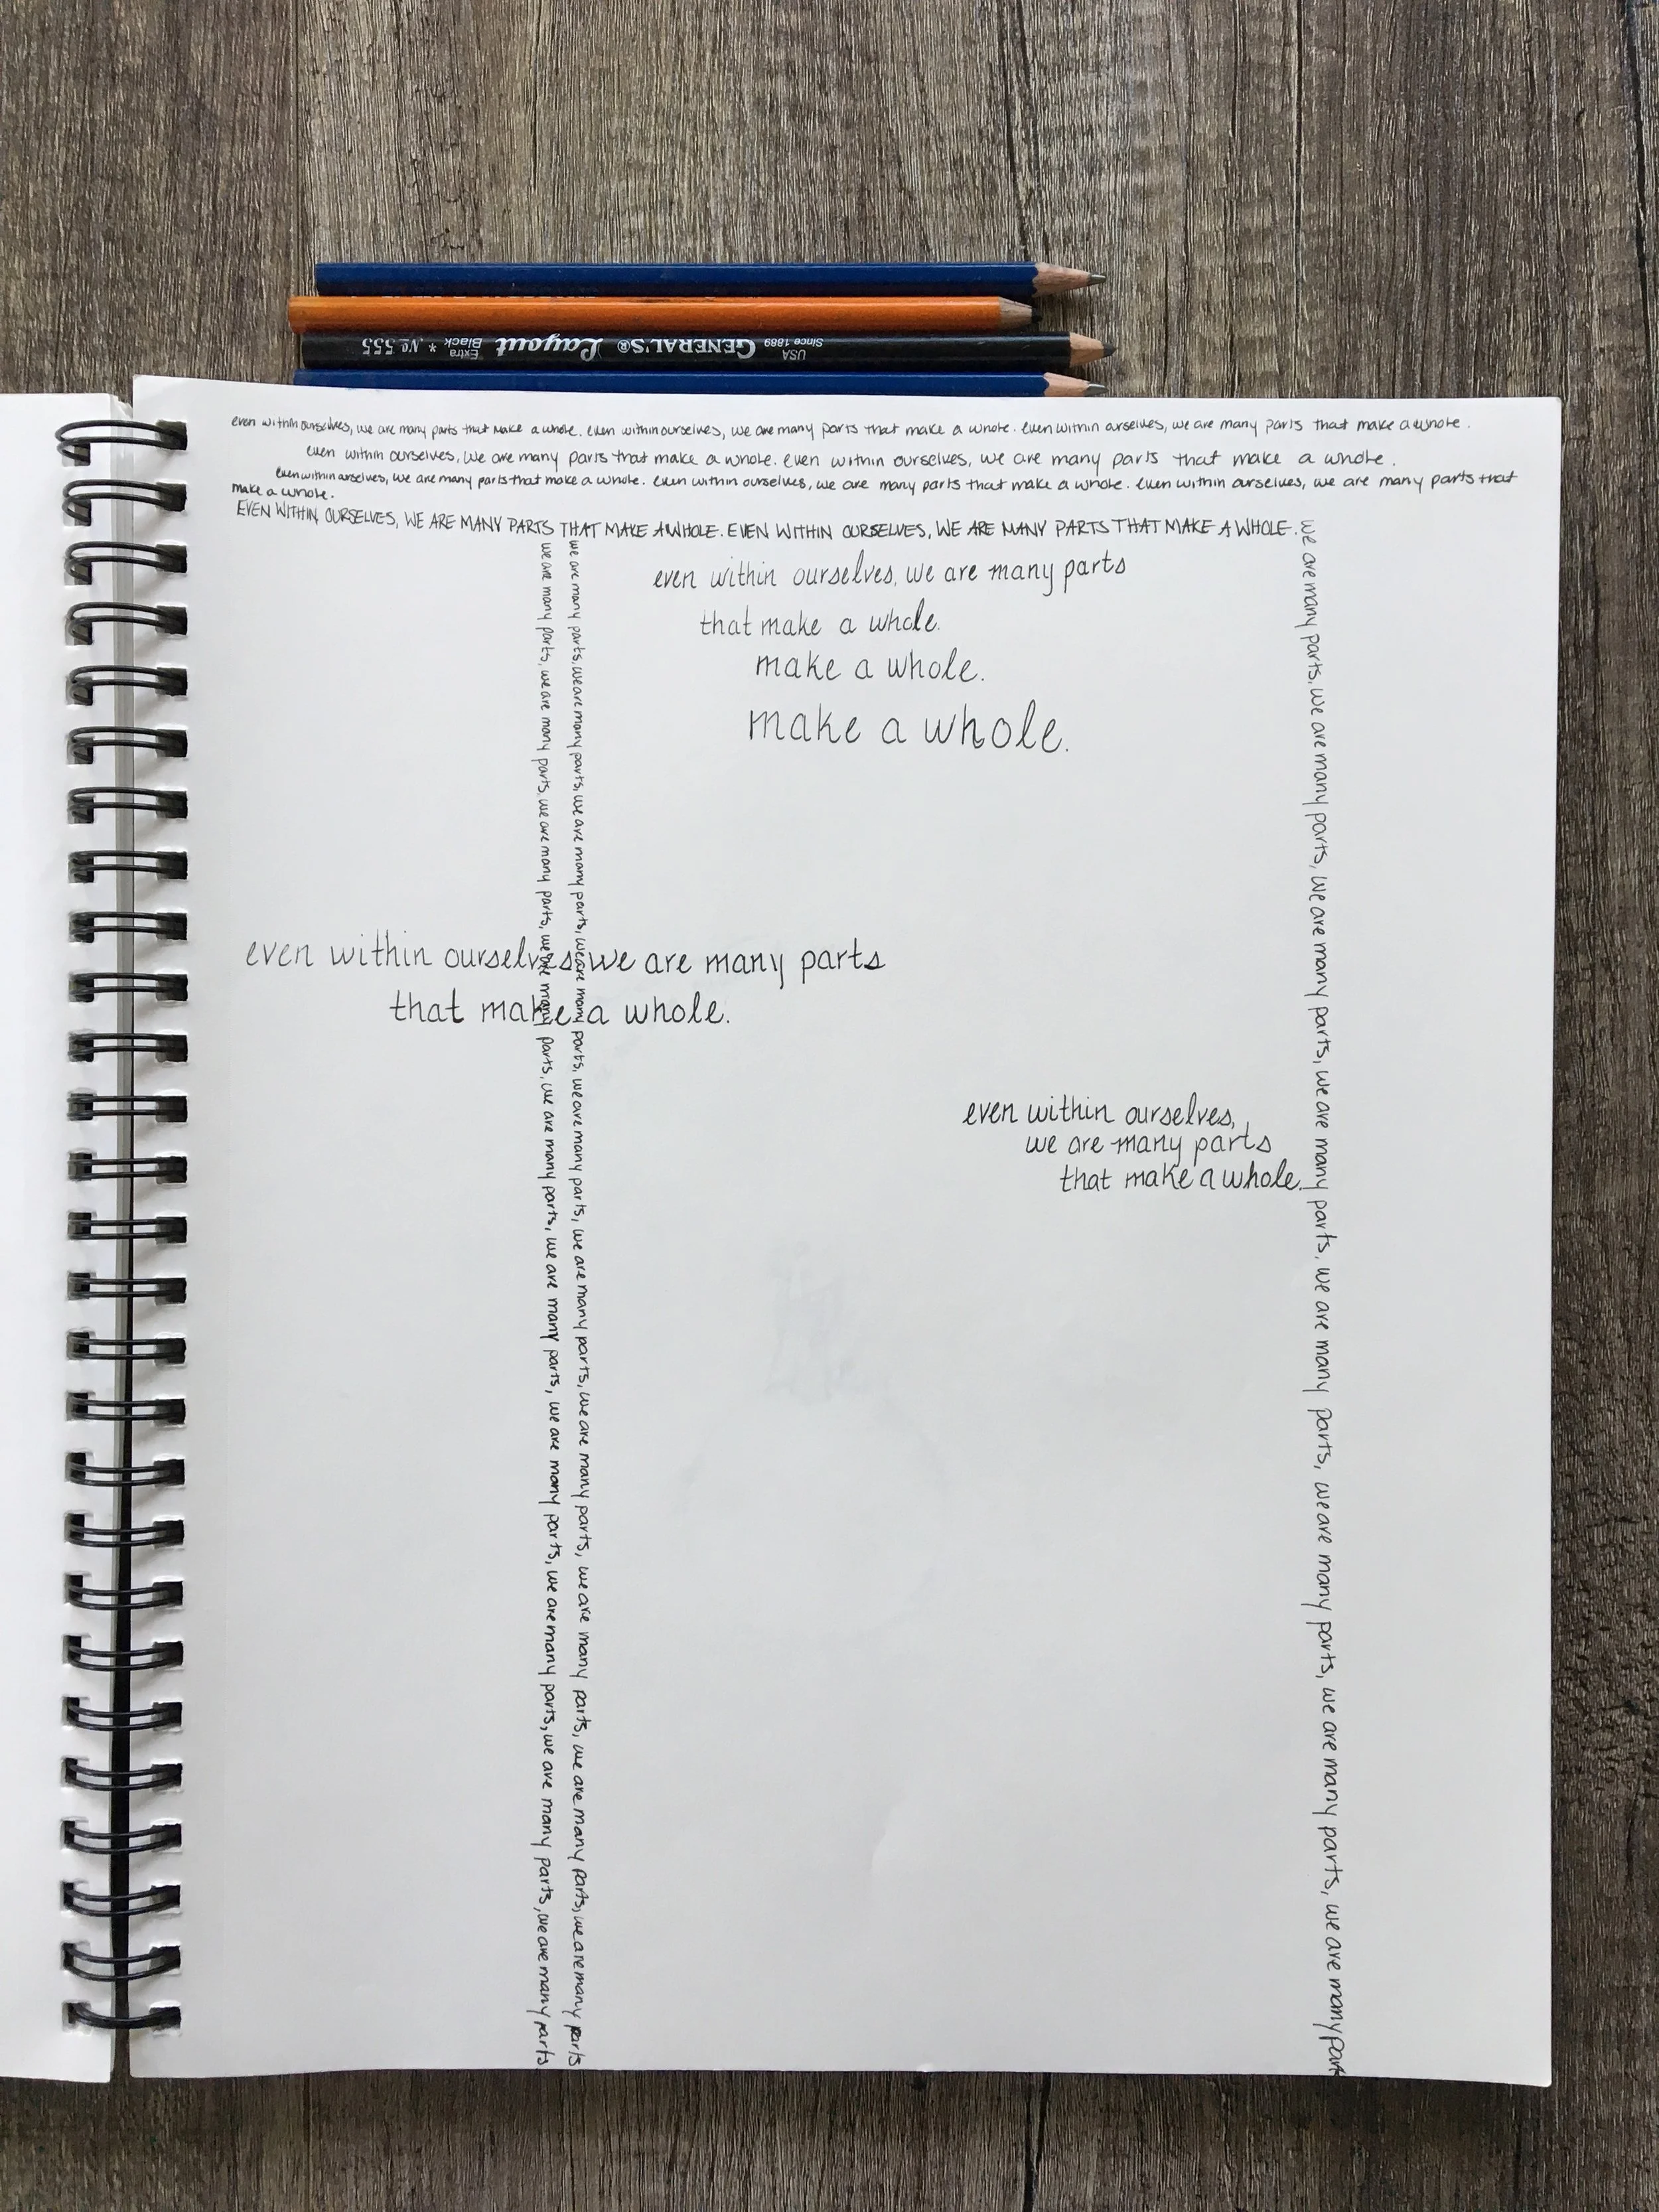 USA Since 1889 GENERAL'S® Layout Extra Black * No. 555
even within ourselves, we are many parts that make a whole. even within ourselves, we are many parts that make a whole. even within ourselves, we are many parts that make a whole.
even within ourselves, we are many parts that make a whole. even within ourselves, we are many parts that make a whole.
even within ourselves, we are many parts that make a whole. even within ourselves, we are many parts that make a whole. even within ourselves, we are many parts that
make a whole.
EVEN WITHIN OURSELVES, WE ARE MANY PARTS THAT MAKE A WHOLE. EVEN WITHIN OURSELVES, WE ARE MANY PARTS THAT MAKE A WHOLE.
even within ourselves, we are many parts
that make a whole.
make a whole.
make a whole.
even within ourselves, we are many parts
that make a whole.
even within ourselves,
we are many parts
that make a whole.
we are many parts, we are many parts, we are many parts, we are many parts, we are many parts, we are many parts, we are many parts, we are many parts, we are many parts, we are many parts
we are many parts, we are many parts, we are many parts, we are many parts, we are many parts, we are many parts, we are many parts, we are many parts, we are many parts, we are many parts
we are many parts, we are many parts, we are many parts, we are many parts, we are many parts, we are many parts, we are many parts, we are many part